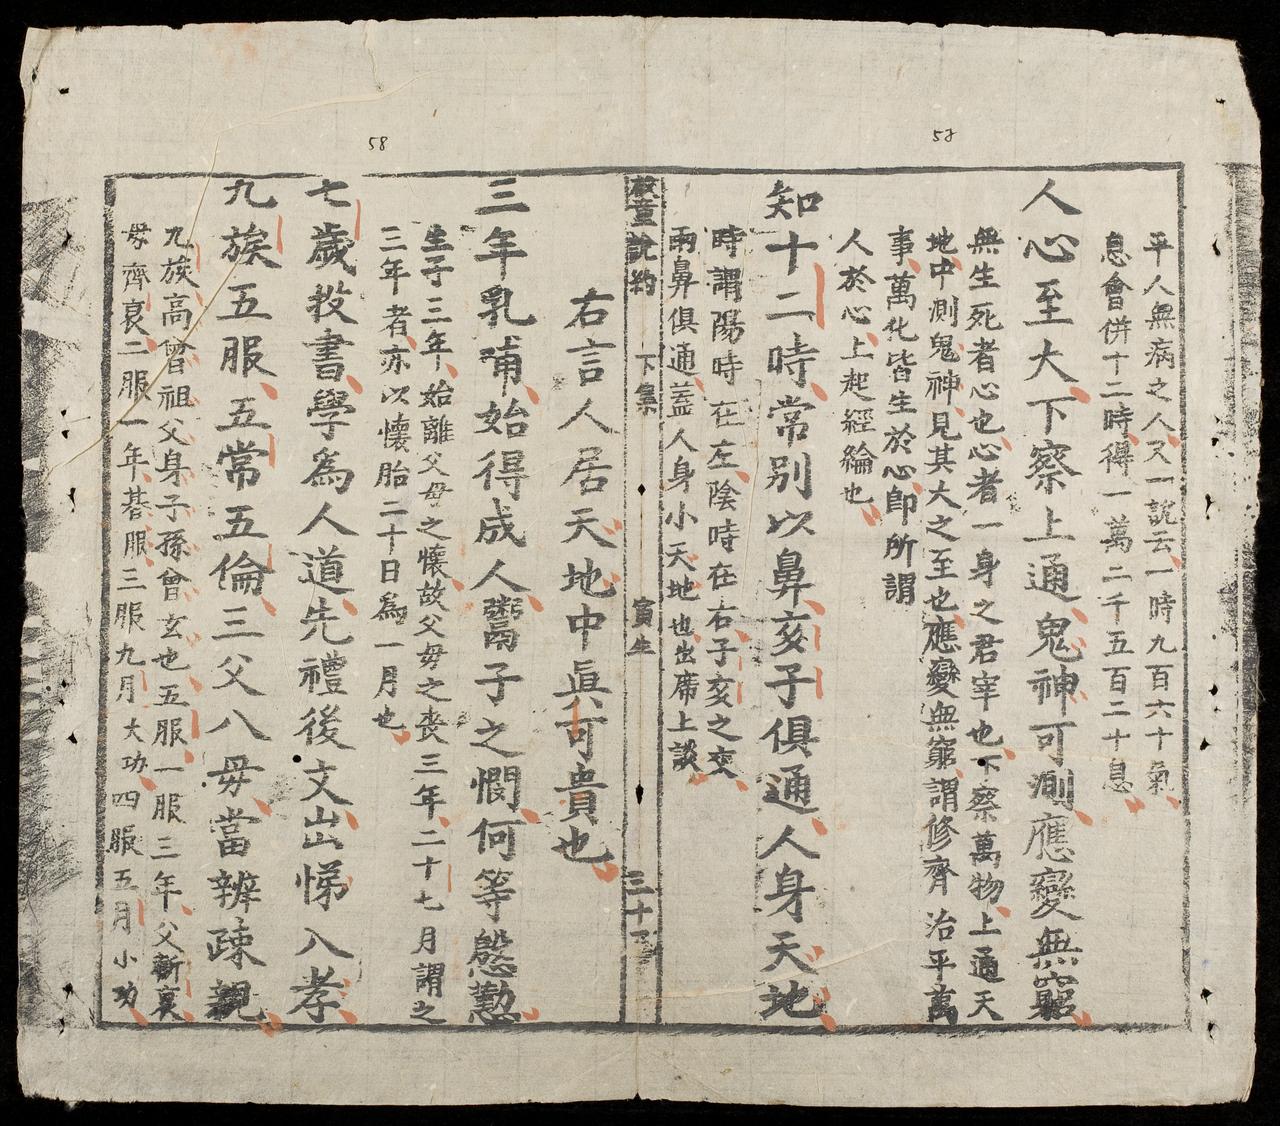 58
58
平人無病之人又一說云一時九百六十氣
息會併十二時得一萬二千五百二十息
人心至大下察上通鬼神可測應變無窮
無生死者心也心者一身之君宰也下察萬物上通天
地中測鬼神見其大之至也應變無窮謂修齊治平萬
事萬化皆生於心卽所謂
人於心上起經綸也
知十二時常别以鼻亥子俱通人身天地
時謂陽時在左陰時在右子亥之交
兩鼻俱通蓋人身小天地也出席上談
教童説約 下集 寅生 三十
右言人居天地中眞可貴也
三年乳哺始得成人鬻子之憫何等慇懃
生子三年始離父母之懷故父毋之喪三年二十七月謂之
三年者亦以懷胎二十日爲一月也
七歲敎書學爲人道先禮後文出悌入孝
九族五服五常五倫三父八毋當辨疎親
九族高曾祖父身子孫曾玄也五服一服三年父斬衰
毋齊衰二服一年朞服三服九月大功四服五月小功